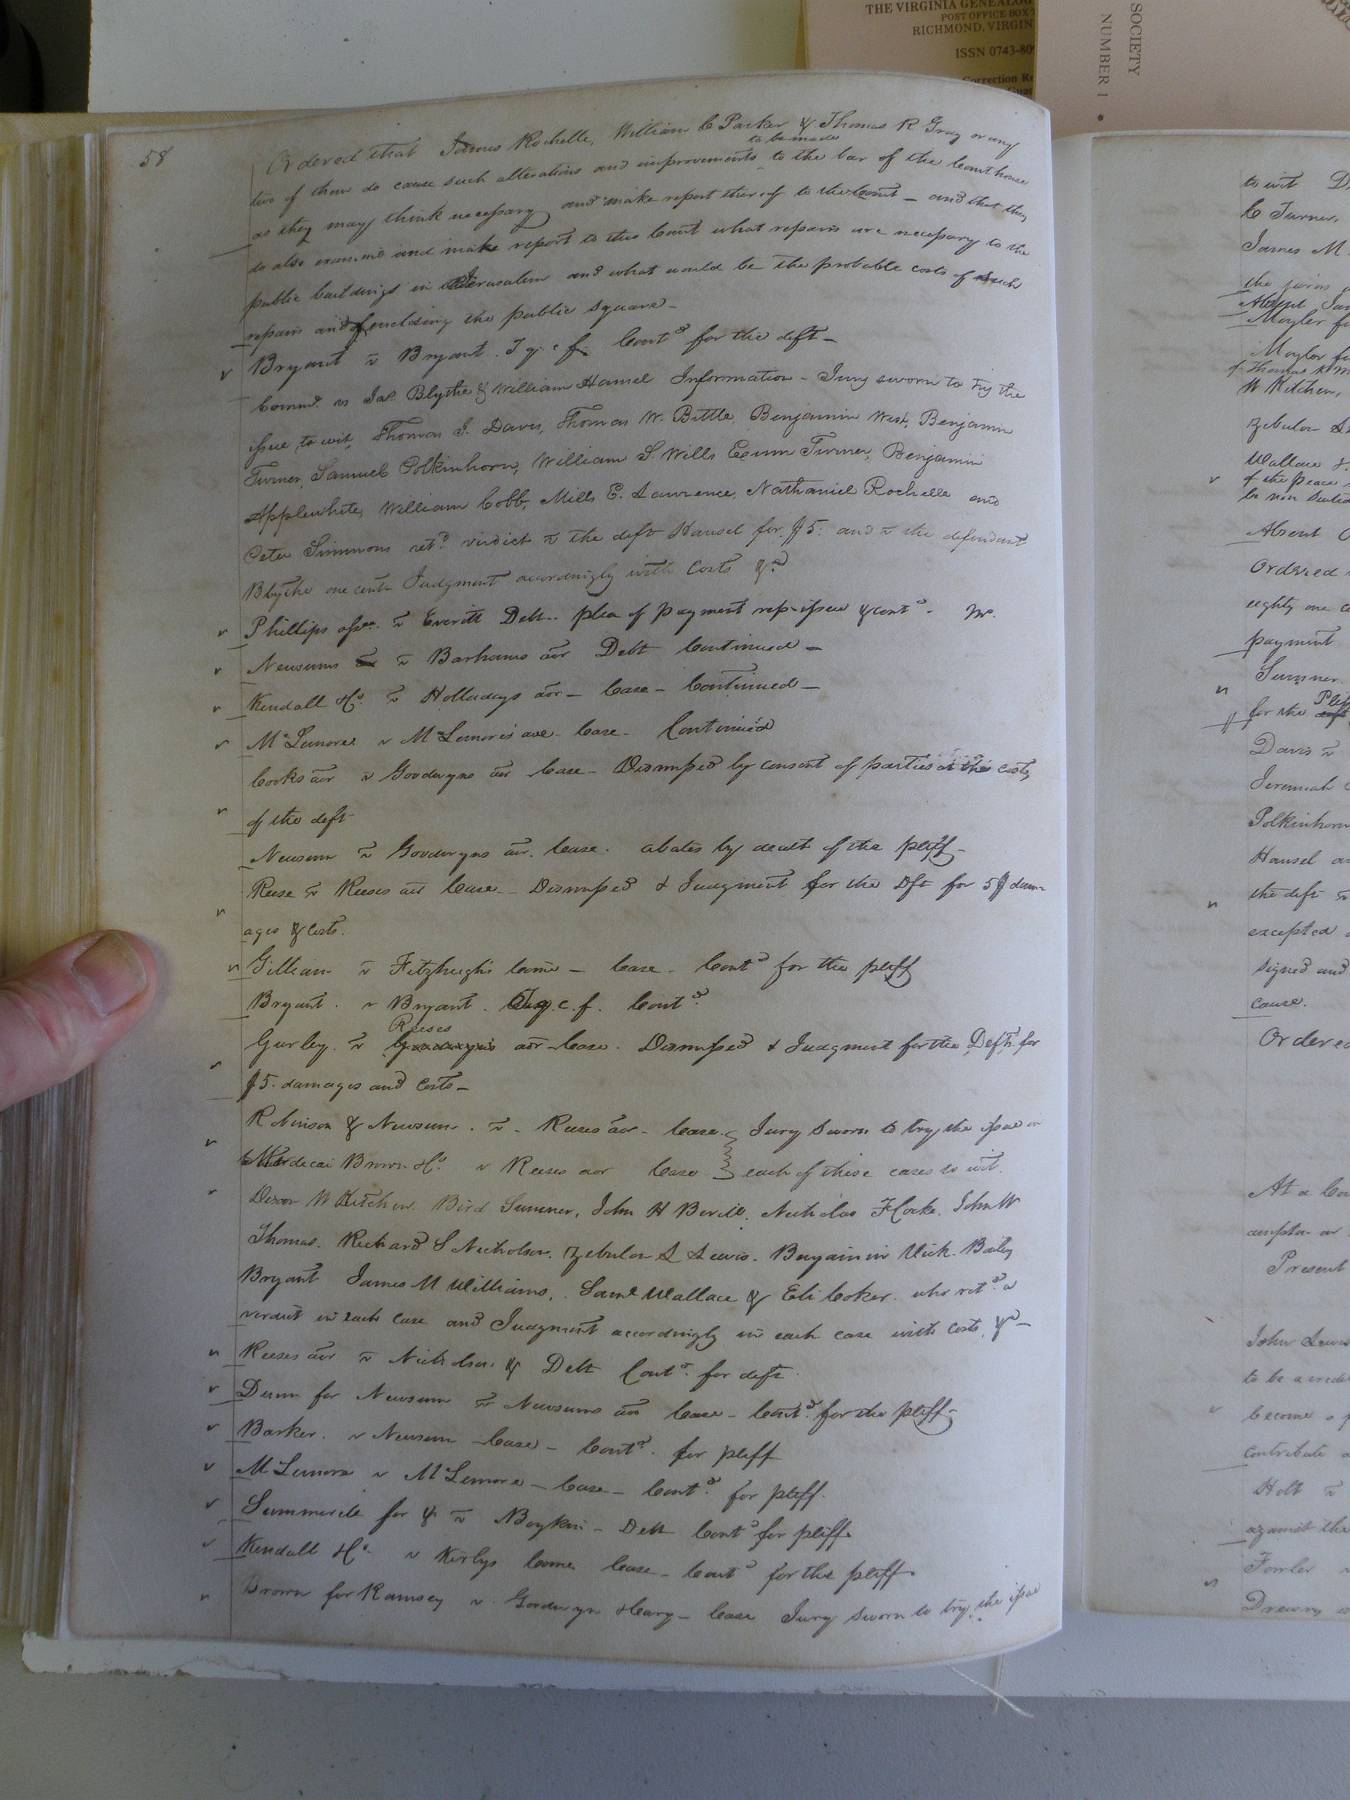 THE VIRGINIA GENEALOG
POST OFFICE BOX
RICHMOND, VIRGIN
ISSN 0743-809
Correction Re
SOCIETY
NUMBER 1
58
Ordered that James Rochelle, William C Parker & Thomas R Gray or any
two of them do cause such alterations and improvements to be made to the bar of the Courthouse
as they may think necessary and make report thereof to the Court - and that they
do also examine and make report to this Court what repairs are necessary to the
public buildings in Jerusalem and what would be the probable costs of such
repairs and of enclosing the public square -
Bryant v Bryant. T q. c f. Contd for the deft -
Comm. vs Jas. Blythe & William Hansel Information - Jury sworn to try the
issue to wit, Thomas J. Davis, Thomas W. Bittle, Benjamin West, Benjamin
Turner, Samuel Polkinhorn, William S. Wills Exum Turner, Benjamin
Applewhite, William Cobb, Mills E. Lawrence, Nathaniel Rochelle and
Peter Simmons retd. verdict v the deft Hansel for $5. and v the defendant
Blythe one cent. Judgment accordingly with costs &c
Phillips assee. v Everitt Debt.. plea of payment rep. issue & contd.
Newsums v Barhams aor Debt Continued -
Kendall & Co. v Holladays aor - Case - Continued -
McLemore v McLemore's aor - Case - Continued
Cooks aor v Goodwyns aor Case - Dismissed by consent of parties at the costs
of the deft
Newsum v Goodwyns aor. Case. abates by death of the pltff -
Reese v Reeses aor Case - Dismissed & Judgment for the Dft for 5$ dam-
ages & Costs.
Gilliam v Fitzhugh's Comee - Case - Contd for the pltff
Bryant. v Bryant. T q. c. f. Contd
Gurley. v Reeses aor Case. Dismissed & Judgment for the Deft. for
$5. damages and costs -
Robinson & Newsum. v - Reeses aor - Case. Jury sworn to try the issue in
Mordecai Brown & Co. v Reeses aor Case each of these cases to wit.
Dixon W Kitchen. Bird Sumner, John H Barett, Nicholas F Cocke. John W
Thomas. Richard S Nicholson. Zebulon S Lewis. Benjamin Vick. Bailey
Bryant James M Williams,. Saml. Wallace & Eli Coker. who retd. a
verdict in each case and Judgment accordingly in each case with costs, &c -
Reeses aor v Nicholson & Debt Contd. for deft.
Dunn for Newsum v Newsums aor Case - Contd. for the pltff -
Barker. v Newsum Case - Contd. for pltff
McLemore v McLemore - Case - Contd. for pltff.
Summerell for & v Boykin - Debt Contd for pltff.
Kendall & Co. v Kirbys Comee Case - Contd for the pltff.
Brown for Ramsey v Goodwyn & Cary - Case Jury sworn to try the issue
to wit
C Turner,
James M.
Moyler
W Kitchen,
Zebulon
Wallace
of the peace
Absent
Ordered
eighty one
payment
Sumner.
for the
Davis v
Jeremiah
Polkinhorn
Hansel
the deft v
excepted
signed and
cause.
Ordered
At a
Present
John Lewis
to be a
become
contribute
Holt v
against the
Fowler
Drewry